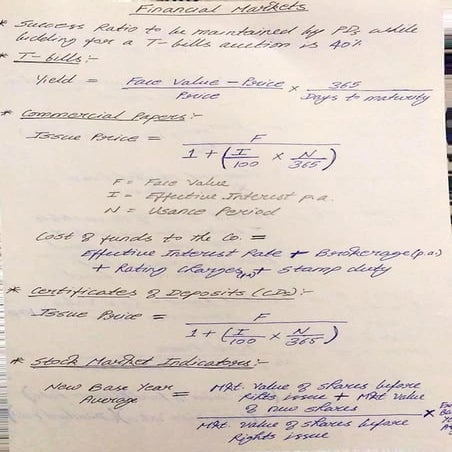 Financial Markets
* Success Ratio to be maintained by PDs while
bidding for a T-bills auction is 40%
* T-bills:-
Yield = Face Value - Price / Price × 365 / Days to maturity
* Commercial Papers:-
Issue Price = F / 1 + (I/100 × N/365)
F = Face Value
I = Effective Interest p.a.
N = Usance Period
Cost of funds to the Co. =
Effective Interest Rate + Brokerage (p.a.)
+ Rating Charges + Stamp duty
* Certificates of Deposits (CDs):-
Issue Price = F / 1 + (I/100 × N/365)
* Stock Market Indicators:-
New Base Year Average = Mkt. Value of shares before
Rights issue + Mkt Value
of new shares
/ Mkt. Value of shares before
Rights issue ×